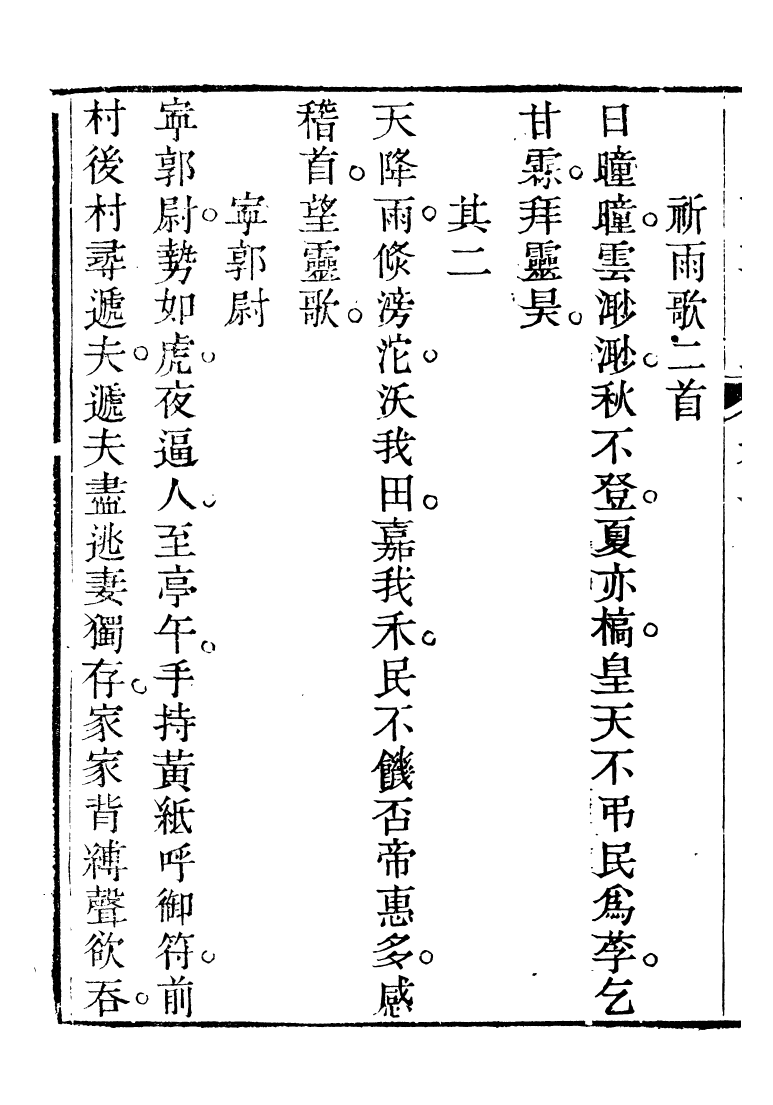 祈雨歌二首
日曈曈。雲渺渺。秋不登。夏亦槁。皇天不弔民爲莩。乞
甘霖。拜靈昊。
其二
天降雨。倐滂沱。沃我田。嘉我禾。民不饑否帝惠多。感
稽首。望靈歌。
寧郭尉
寧郭尉。勢如虎。夜逼人。至亭午。手持黃紙呼御符。前
村後村尋遞夫。遞夫盡逃妻獨存。家家背縛聲欲吞。